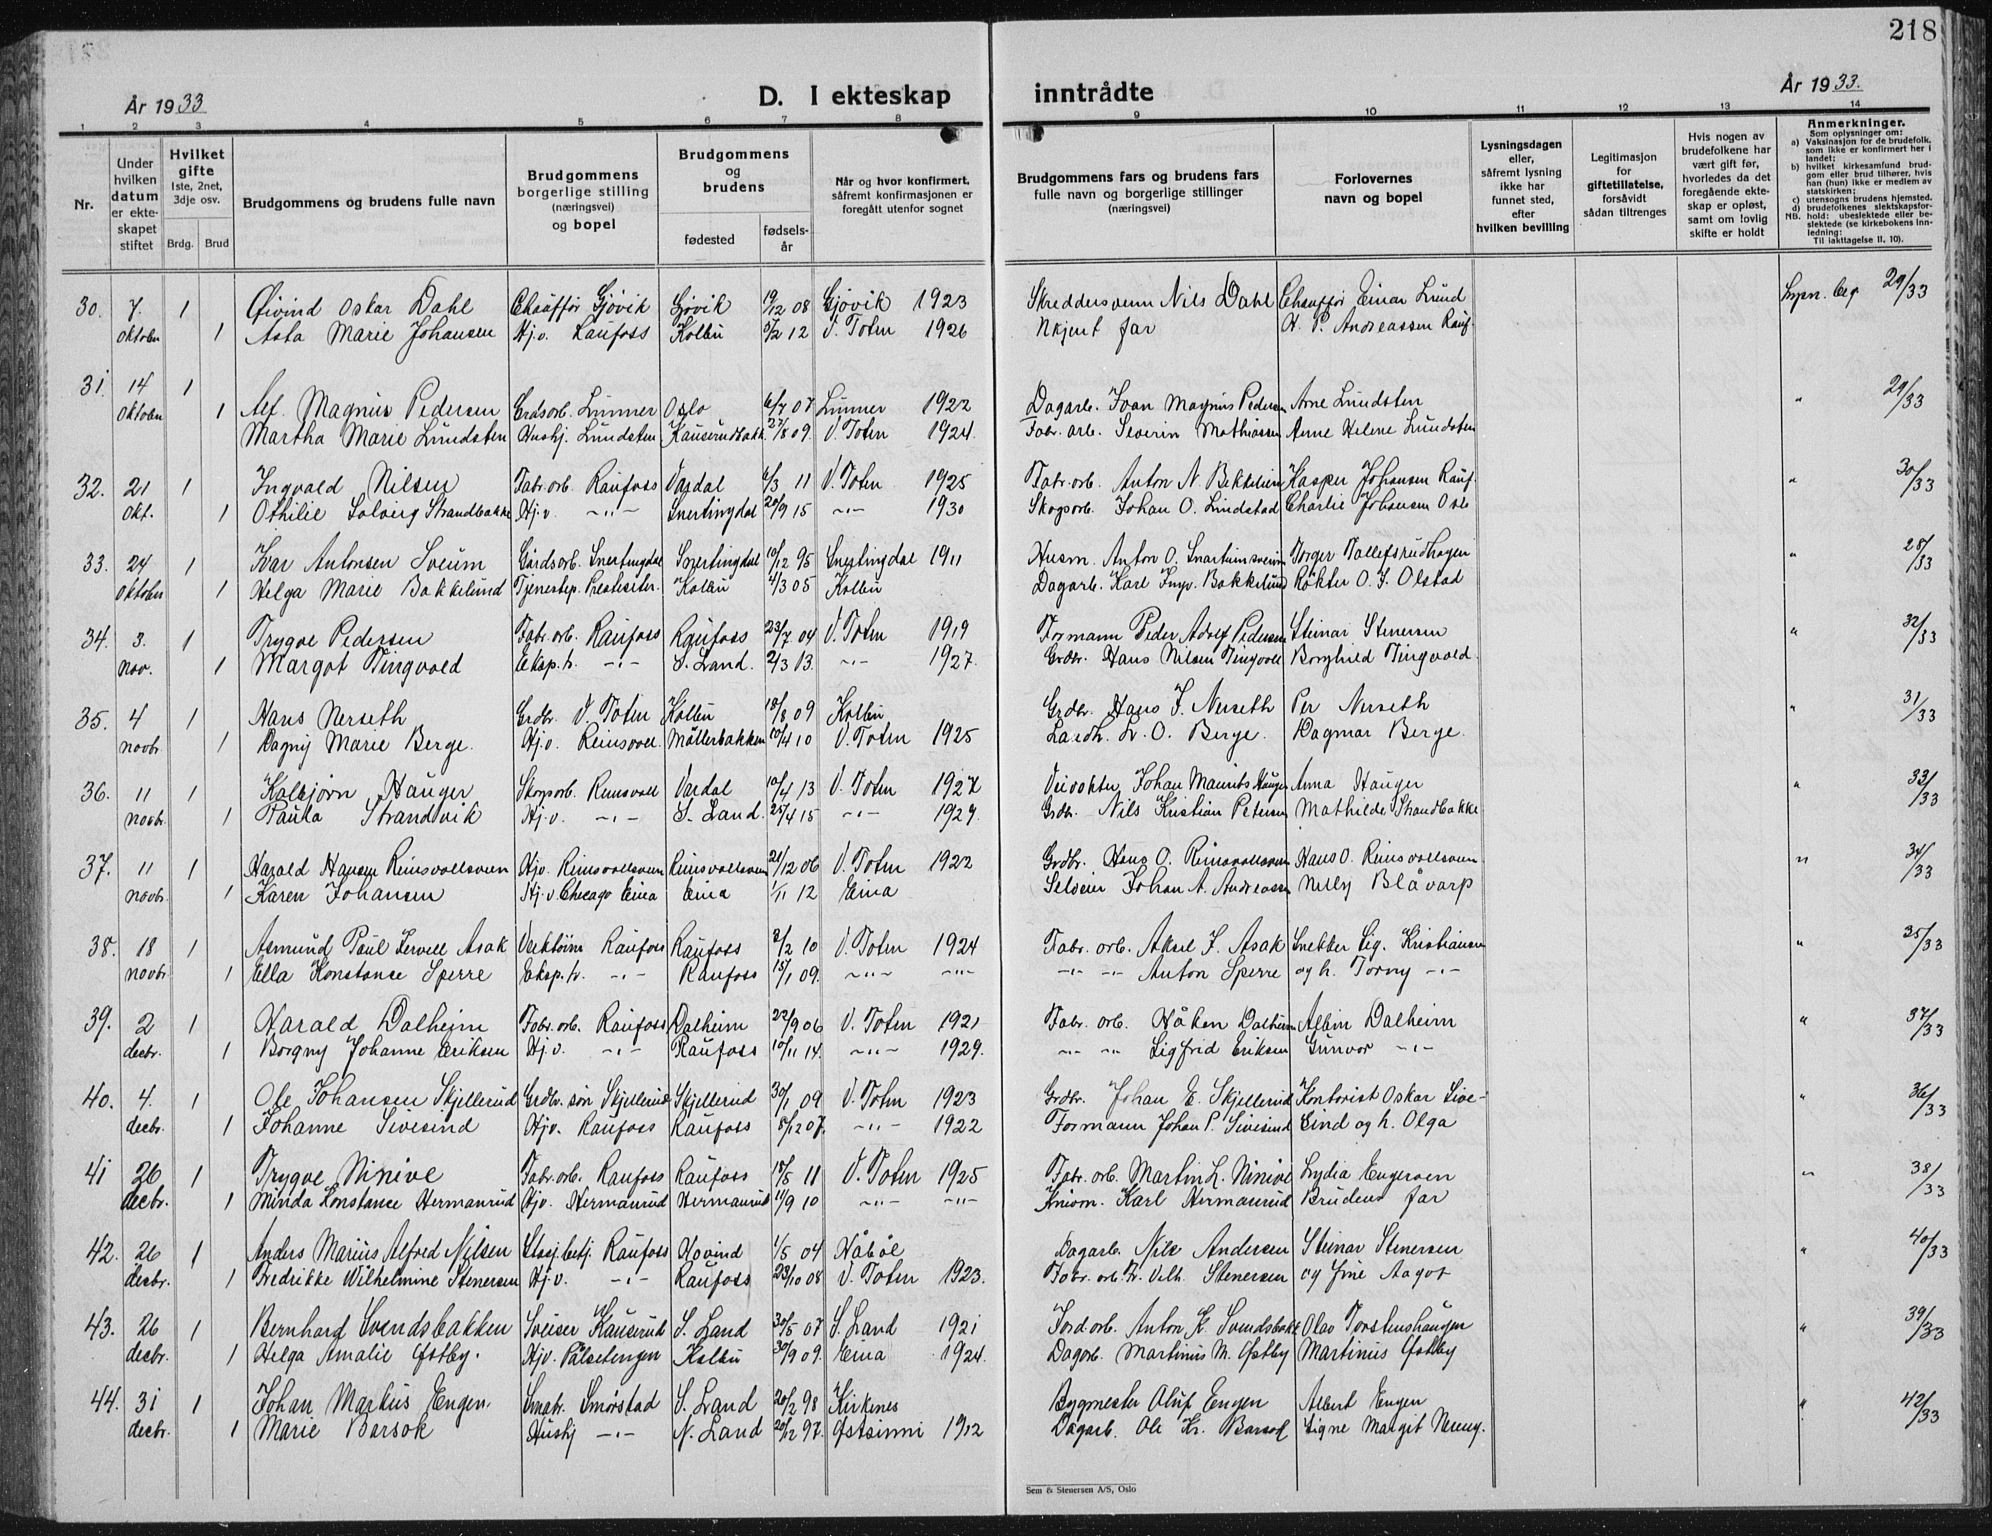 218
År 1933
D. I ekteskap inntrådte
År 1933.
1 2 3 4 5 6 7 8 9 10 11 12 13 14
Nr.
Under hvilken datum er ekteskapet stiftet
Hvilket gifte 1ste, 2net, 3dje osv.
Brdg. Brud
Brudgommens og brudens fulle navn
Brudgommens borgerlige stilling (næringsvei) og bopel
Brudgommens og brudens
fødested
fødselsår
Når og hvor konfirmert, såfremt konfirmasjonen er foregått utenfor sognet
Brudgommens fars og brudens fars fulle navn og borgerlige stillinger (næringsvei)
Forlovernes navn og bopel
Lysningsdagen eller, såfremt lysning ikke har funnet sted, efter hvilken bevilling
Legitimasjon for giftetillatelse, forsåvidt sådan tiltrenges
Hvis nogen av brudefolkene har vært gift før, hvorledes da det foregående ekteskap er opløst, samt om lovlig skifte er holdt
Anmerkninger.
Som oplysninger om:
a) Vaksinasjon for de brudefolk, som ikke er konfirmert her i landet;
b) hvilket kirkesamfund brudgom eller brud tilhører, hvis han (hun) ikke er medlem av statskirken;
c) utensogns brudens hjemsted.
d) brudefolkenes slektskapsforhold: ubeslektede eller beslektede (se kirkebokens innledning:
NB. Til iakttagelse II, 10).
30. 7. 1 Øivind Oskar Dahl Chauffør Gjøvik Gjøvik 19/12 08 Gjøvik 1923 Skreddersvenn Nils Dahl Chauffør Einar Lund 29/33
oktober 1 Asta Marie Johansen Hj.v. Raufoss Kolbu 5/2 12 V. Toten 1926 Ukjent far H. P. Andreassen Rauf.
31. 14 1 Alf. Magnus Pedersen Grdsarb. Lunner Oslo 6/7 07 Lunner 1922 Dagarb. Ivan Magnus Pedersen Arne Lundsten " 29/33
oktober 1 Martha Marie Lundsten Hushj. Lundsten Kauserudbakk. 27/8 09. V. Toten 1924. Fabr. arb. Severin Mathiassen Anne Helene Lundsten
32. 21 1 Ingvald Nilsen Fabr.arb. Raufoss Vardal 6/3 11 V. Toten 1925 Fabr.arb. Anton N. Bekkelien Kasper Johansen Rauf. " 30/33
okt. 1 Othilie Solveig Strandbakke Hj.v. -"- Snertingdal 20/9 15 -"- 1930 Skogsarb. Johan O. Lindstad Charlie Johansen Oslo
33. 24 1 Ivar Antonsen Sveum Gårdsarb. Snertingdal Snertingdal 10/12 95 Snertingdal 1911 Husm. Anton O. Snartumsveen Torger Tollefsrudhagen " 28/33
oktober 1 Helga Marie Bakkelund Tjenestep. Prestseter. Kolbu 4/3 05 Kolbu Dagarb. Karl Ingv. Bakkelund Røkter O. J. Olstad
34. 3. 1 Trygve Pedersen Fabr.arb. Raufoss Raufoss 23/7 04 V. Toten 1919 Formann Peder Adolf Pedersen Steinar Stenersen " 32/33
nov. 1 Margot Tingvold Eksp.tr. -"- S. Land. 2/3 13. -"- 1927. Grdbr. Hans Nilsen Tingvold Borghild Tingvold.
35. 4 1 Hans Nerseth Grdbr. V. Toten Kolbu 18/8 09 Kolbu Grdbr. Hans J. Nerseth Per Nerseth " 31/33
novbr 1 Dagny Marie Berge. Hj.v. Reinsvoll Møllerbakken 10/4 10 V. Toten 1925 O. Berge. Dagmar Berge.
36. 11 1 Kolbjørn Hauger Skogsarb. Reinsvoll Vardal 10/4 13 V. Toten 1927 Veivokter Johan Maurits Hauger Anna Hauger " 33/33
novbr. 1 Paula Strandvik Hj.v. -"- S. Land. 25/4 15 -"- 1929. Grdbr. Nils Kristian Petersen Mathilde Strandbakke
37. 11 1 Harald Hansen Reinsvollsveen Hjv. Reinsvollsveen Reinsvollsveen 21/12 06 V. Toten 1922 Grdbr. Hans O. Reinsvollsveen Hans O. Reinsvollsveen " 34/33
novbr. 1 Karen Johansen Hj.v. Chicago Eina Eina 1/11 12 Eina Selveier Johan A. Andreassen Nelly Blåvarp
38. 18 1 Asmund Paul Fervell Asak Verktøim Raufoss Raufoss 2/2 10 V. Toten 1924 Fabr. arb. Aksel F. Asak Snekker Sig. Kristiansen " 35/33
novbr 1 Ella Konstance Sperre Eksp.tr. -"- Raufoss 15/1 09. -"- -"- -"- -"- Anton Sperre og h. Torny -"-
39. 2 1 Harald Dalheim Fabr.arb. Raufoss Dalheim 22/9 06 V. Toten 1921 Fabr. arb. Håken Dalheim Albin Dalheim " 37/33
decbr. 1 Borgny Johanne Eriksen Hj.v. -"- Raufoss 10/11 14. -"- 1929. -"- -"- Sigfrid Eriksen Gunvor -"-
40. 4. 1 Ole Johansen Skjellerud Grdbr. søn Skjellerud Skjellerud 30/1 09 V. Toten 1923 Grdbr. Johan E. Skjellerud Kontorist Oskar Sive- " 36/33
decbr. 1 Johanne Sivesind Hjv. Raufoss Raufoss 8/12 07. -"- 1922 Formann Johan P. Sivesind sind og h. Olga
41 26 1 Trygve Ninive Fabr.arb. Raufoss Raufoss 18/5 11 V. Toten 1925 Fabr. arb. Martin L. Ninive Lydia Engersen " 38/33
decbr. 1 Minda Konstance Hermanrud Hjv. Hermanrud Hermanrud 11/9 10 -"- -"- Karl Hermanrud Brudens far
42. 26 1 Anders Marius Alfred Nilsen Stasj.betj. Raufoss Hovind 1/5 04 Håbøl Dagarb. Nils Andersen Steinar Stenersen " 40/33
decbr. 1 Fredrikke Wilhelmine Stenersen Hj.v. -"- Raufoss 23/10 08 V. Toten 1923. Fabr. arb. Fr. Vilh. Stenersen og frue Aagot
43. 26 1 Bernhard Svendsbakken Sveiser Kauserud S. Land 30/5 07 S. Land 1921 Jordarb. Anton K. Svendsbakk. Olav Torstenshaugen " 39/33
decbr. 1 Helga Amalie Østby. Hjv. Paalselengen Kolbu 30/9 09. Eina 1924. Dagarb. Martinus M. Østby Martinus Østby
44. 31 1 Johan Markus Engen. Smabr. Smørstad S. Land 20/2 98 Kirkenes Bygmester Oluf Engen Albert Engen " 42/33
decbr. 1 Marie Barsok Hushj -"- N. Land 20/12 97. Østsinni 1912 Dagarb. Ole Kr. Barsok Signe Margit
Sem & Stenersen A/S, Oslo